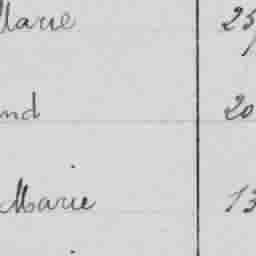 Marie 25
nd 20
Marie 13